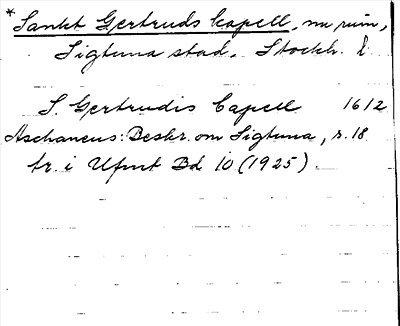 * Sankt Gertruds kapell, nu ruin,
Sigtuna stad. Stockh. l
S. Gertrudis Capell 1612
Aschaneus: Beskr. om Sigtuna, s. 18
tr. i Ufmt Bd 10 (1925).